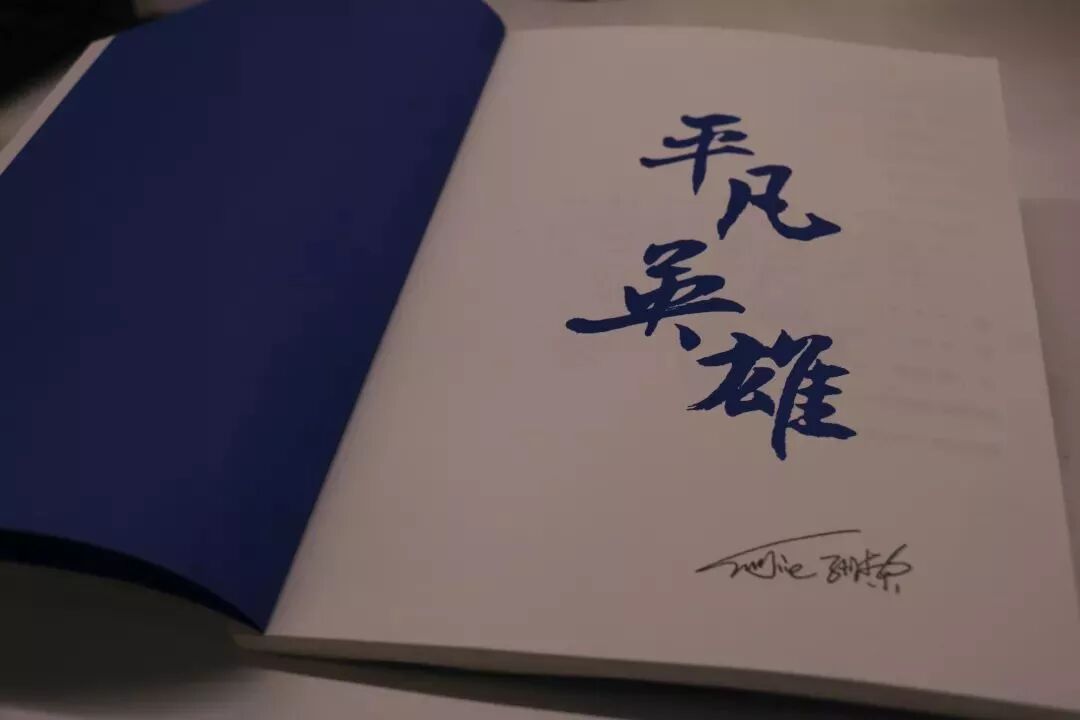 平凡
英雄